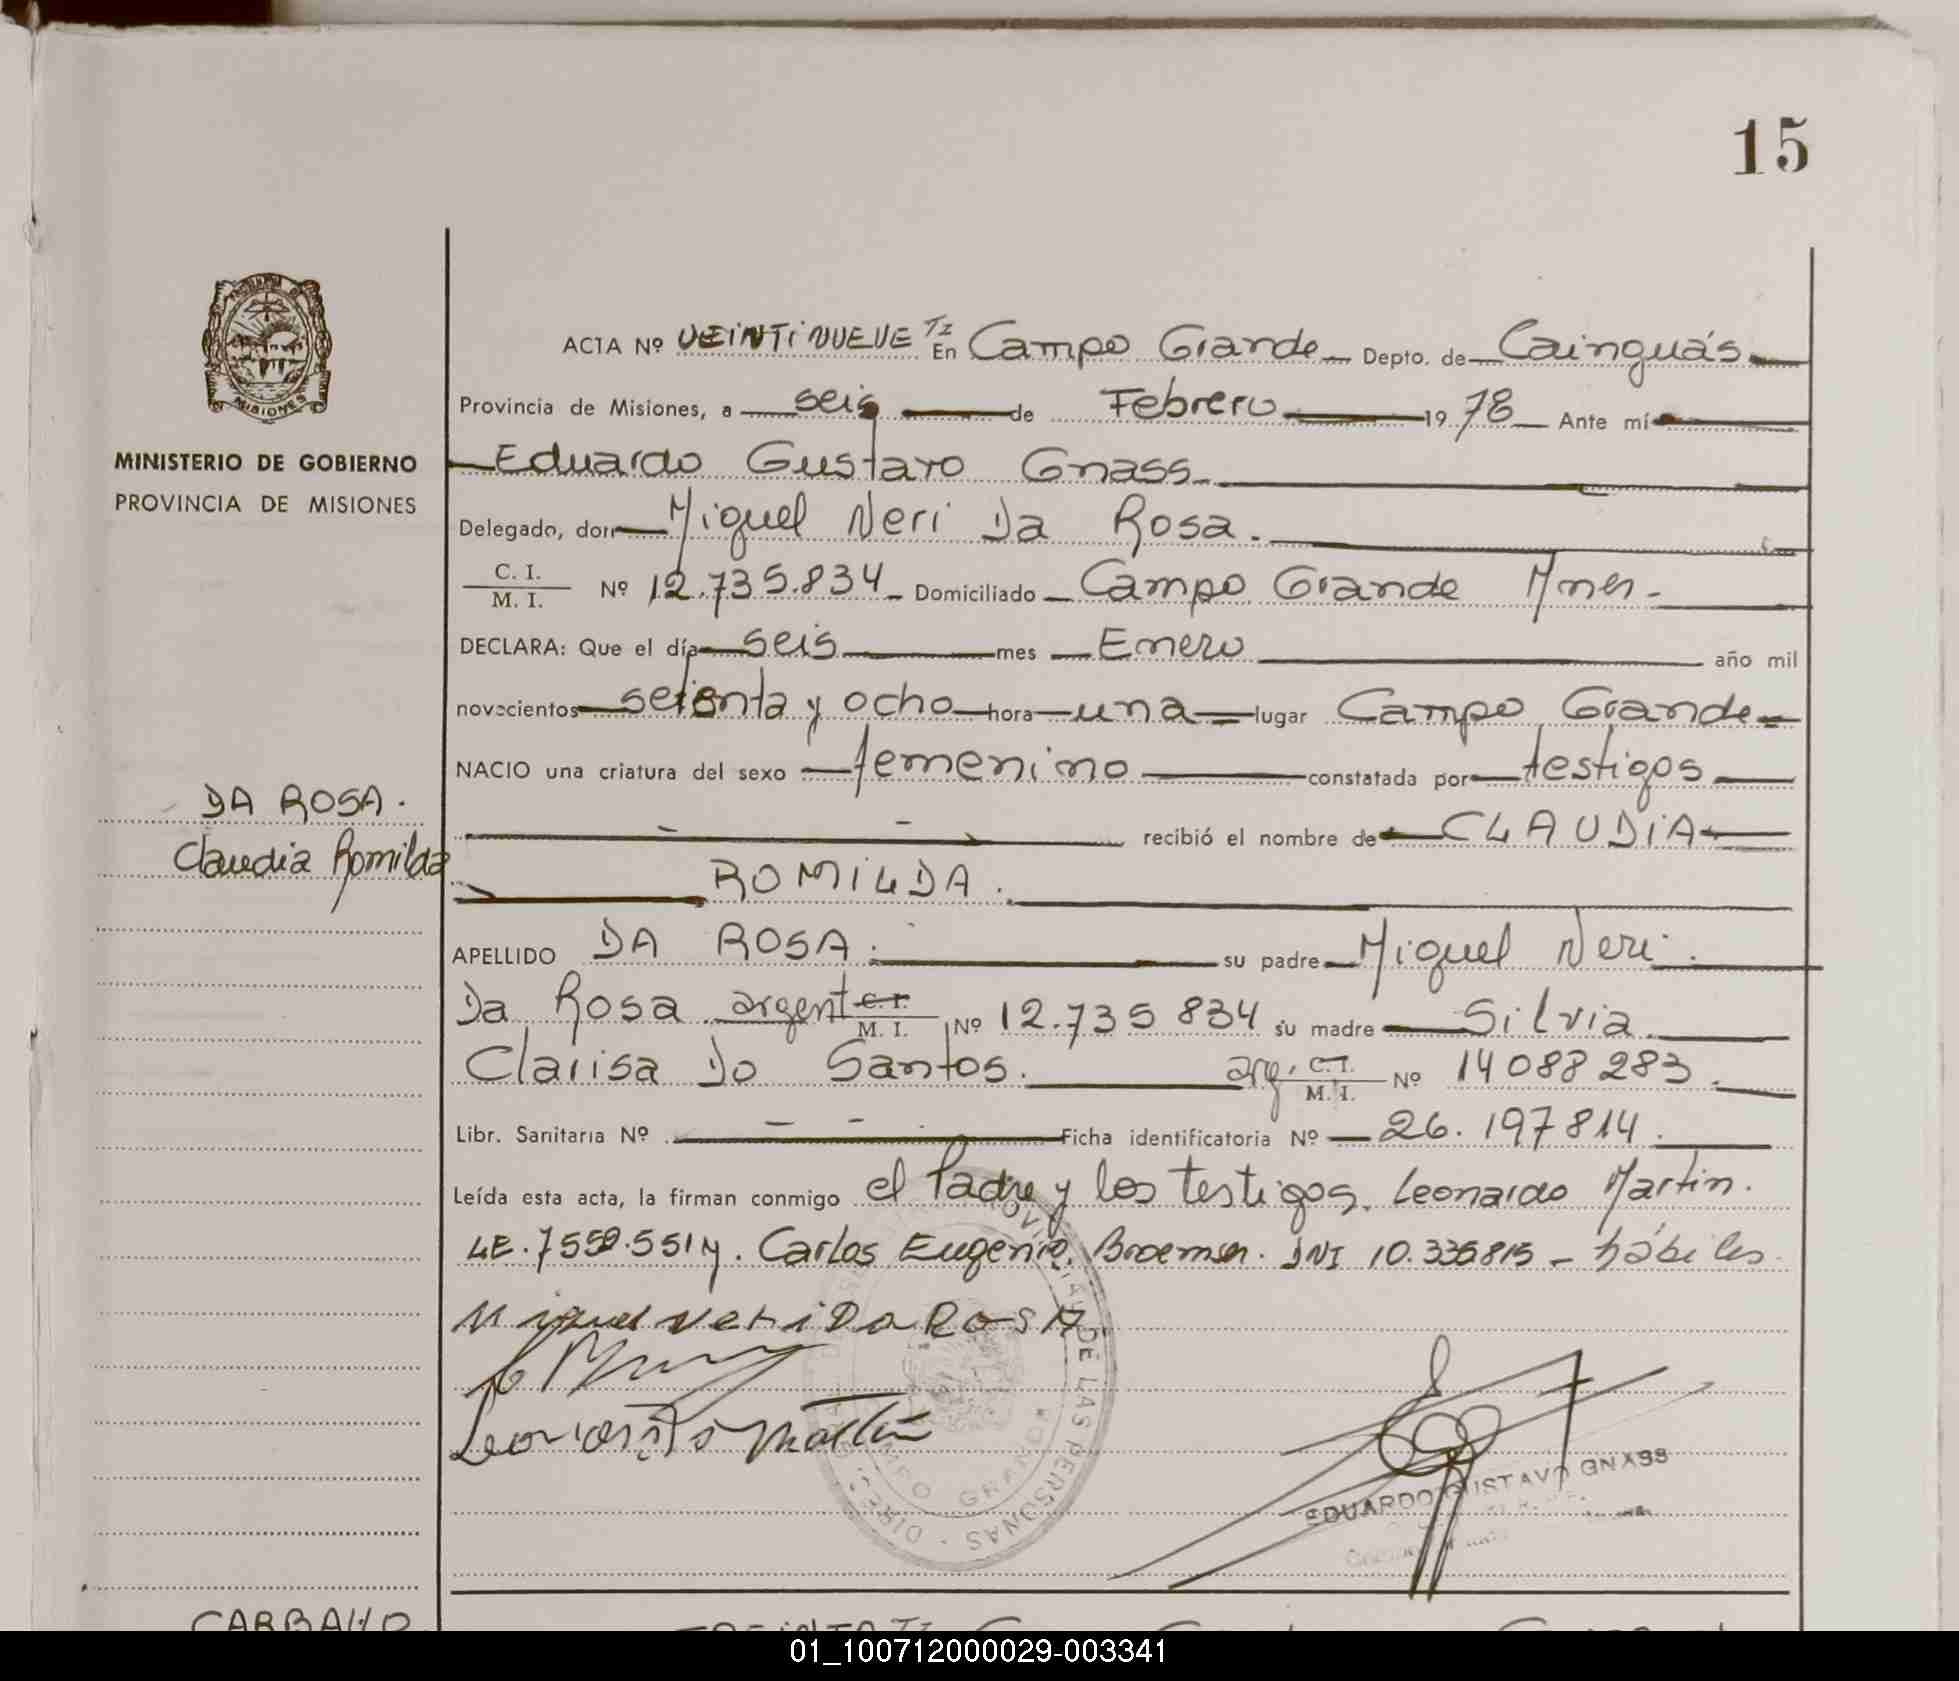 15
MISIONES
MINISTERIO DE GOBIERNO
PROVINCIA DE MISIONES
DA ROSA.
Claudia Romilda
ACTA Nº VEINTINUEVE TI En Campo Grande Depto. de Cainguás
Provincia de Misiones, a seis de Febrero 1978 Ante mí
Eduardo Gustavo Gnass
Delegado, don Miguel Neri Da Rosa.
C. I. / M. I. Nº 12.735.834 Domiciliado Campo Grande Mnes.
DECLARA: Que el día seis mes Enero año mil
novecientos setenta y ocho hora una lugar Campo Grande
NACIO una criatura del sexo femenino constatada por testigos
recibió el nombre de CLAUDIA
ROMILDA.
APELLIDO DA ROSA. su padre Miguel Neri
Da Rosa argent C. I. / M. I. Nº 12.735 834 su madre Silvia
Clarisa Do Santos. arg. C. I. / M. I. Nº 14088283.
Libr. Sanitaria Nº Ficha identificatoria Nº 26.197814.
Leída esta acta, la firman conmigo el Padre y los testigos. Leonardo Martin.
LE. 7559.551 y. Carlos Eugenio DNI 10.335815 - hábiles
Miguel Neri Da ROSA
Leonardo Martin
CAMPO GRANDE
DE LAS PERSONAS
EDUARDO GUSTAVO GNASS
CARBALLO
TREINTA TI
01_100712000029-003341